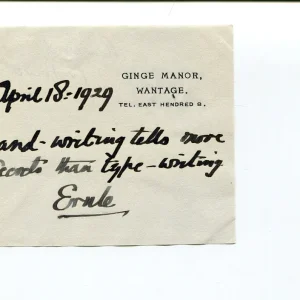 GINGE MANOR,
WANTAGE.
TEL: EAST HENDRED
April 18-1929
and-writing tells more
ecrets than type-writing
Ernle